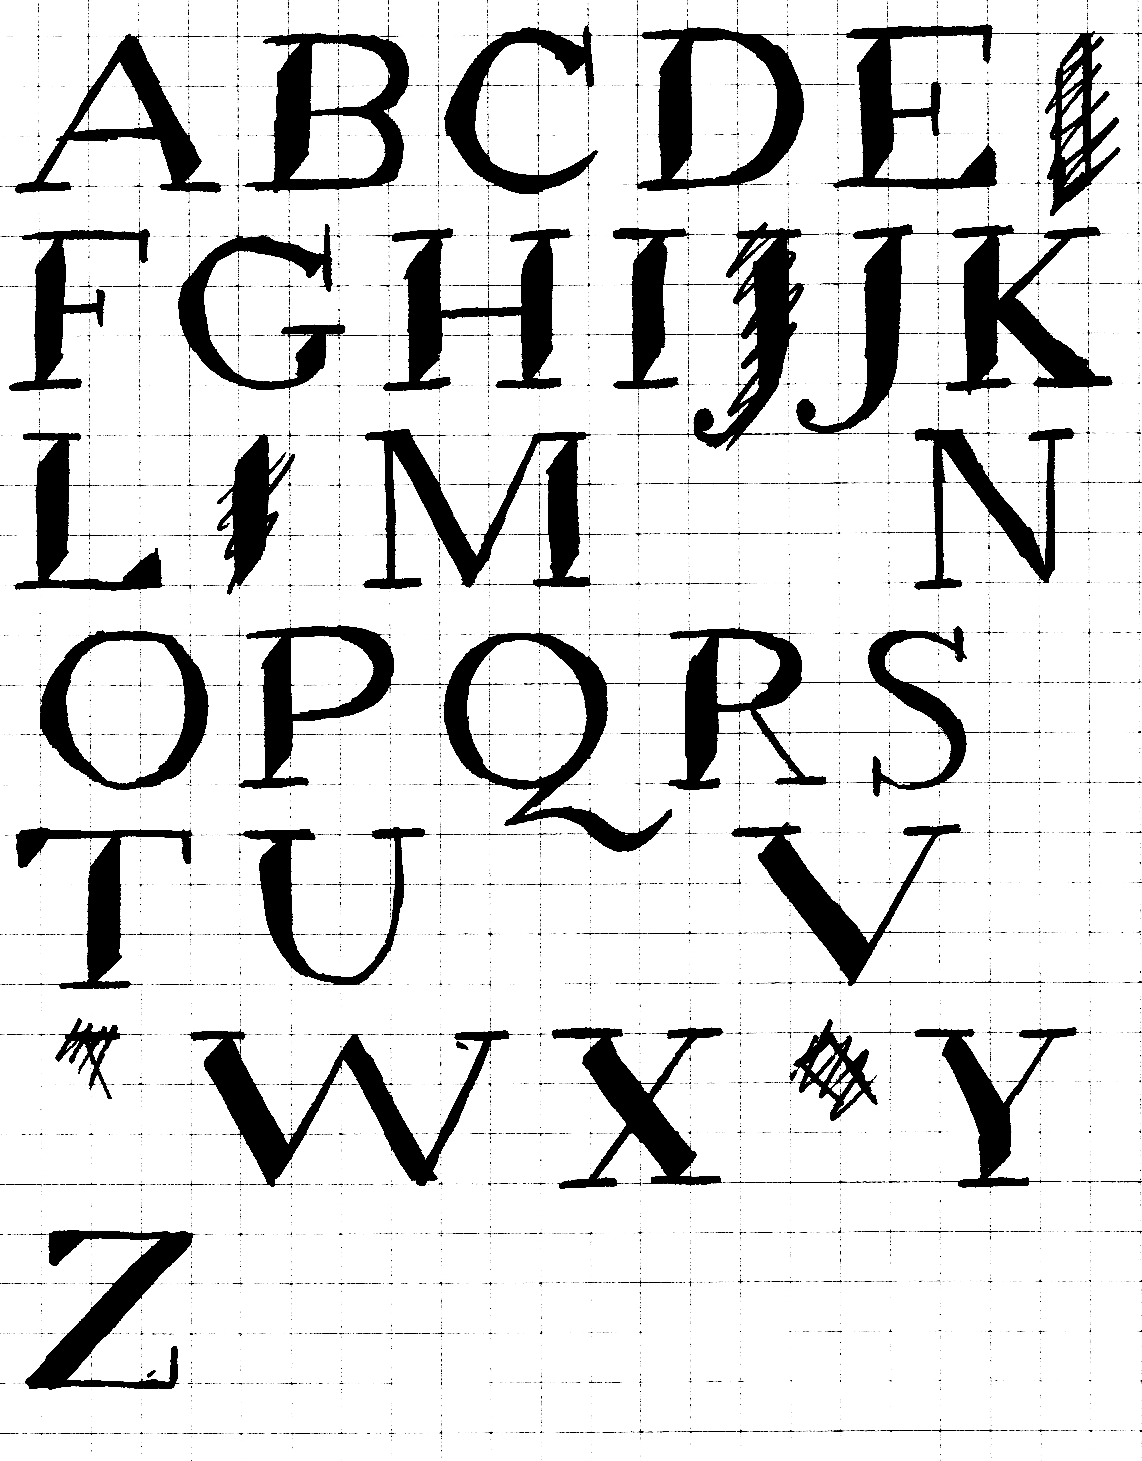 A B C D E
F G H I J K
L M N
O P Q R S
T U V
W X Y
Z